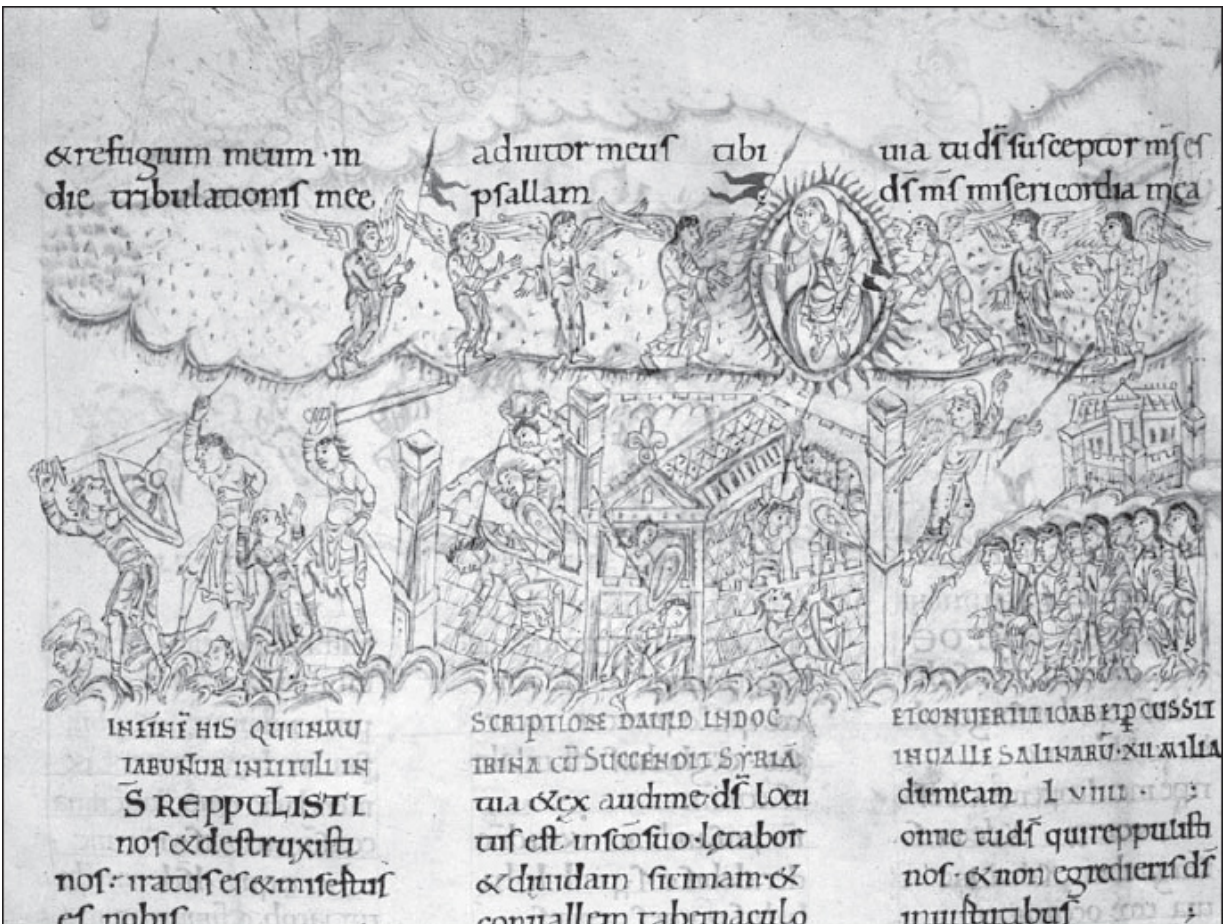 &refugium meum · in
die tribulationis mee
adiutor meus tibi
psallam
uia tu ds̄ susceptor m̄s es
ds̄ m̄s misericordia mea
INFINĒ HIS QUIINMU
TABUNTUR INTITULI IN
S̄ REPPULISTI
nos & destruxisti
nos · iratus es & misertus
es nobis
SCRIPTIONE DAUID INDOC
TRINA CŪ SUCCENDIT SYRIĀ
tua & ex audi me · ds̄ locu
tus est in sc̄o suo · letabor
& diuidam sicimam &
conuallem tabernaculo
ET CONUERTIT IOAB ET P̄CUSSIT
INUALLE SALINARŪ · XII MILIA
dumeam LVIIII ·
onne tu ds̄ qui reppulisti
nos · & non egredieris ds̄
inuirtutibus